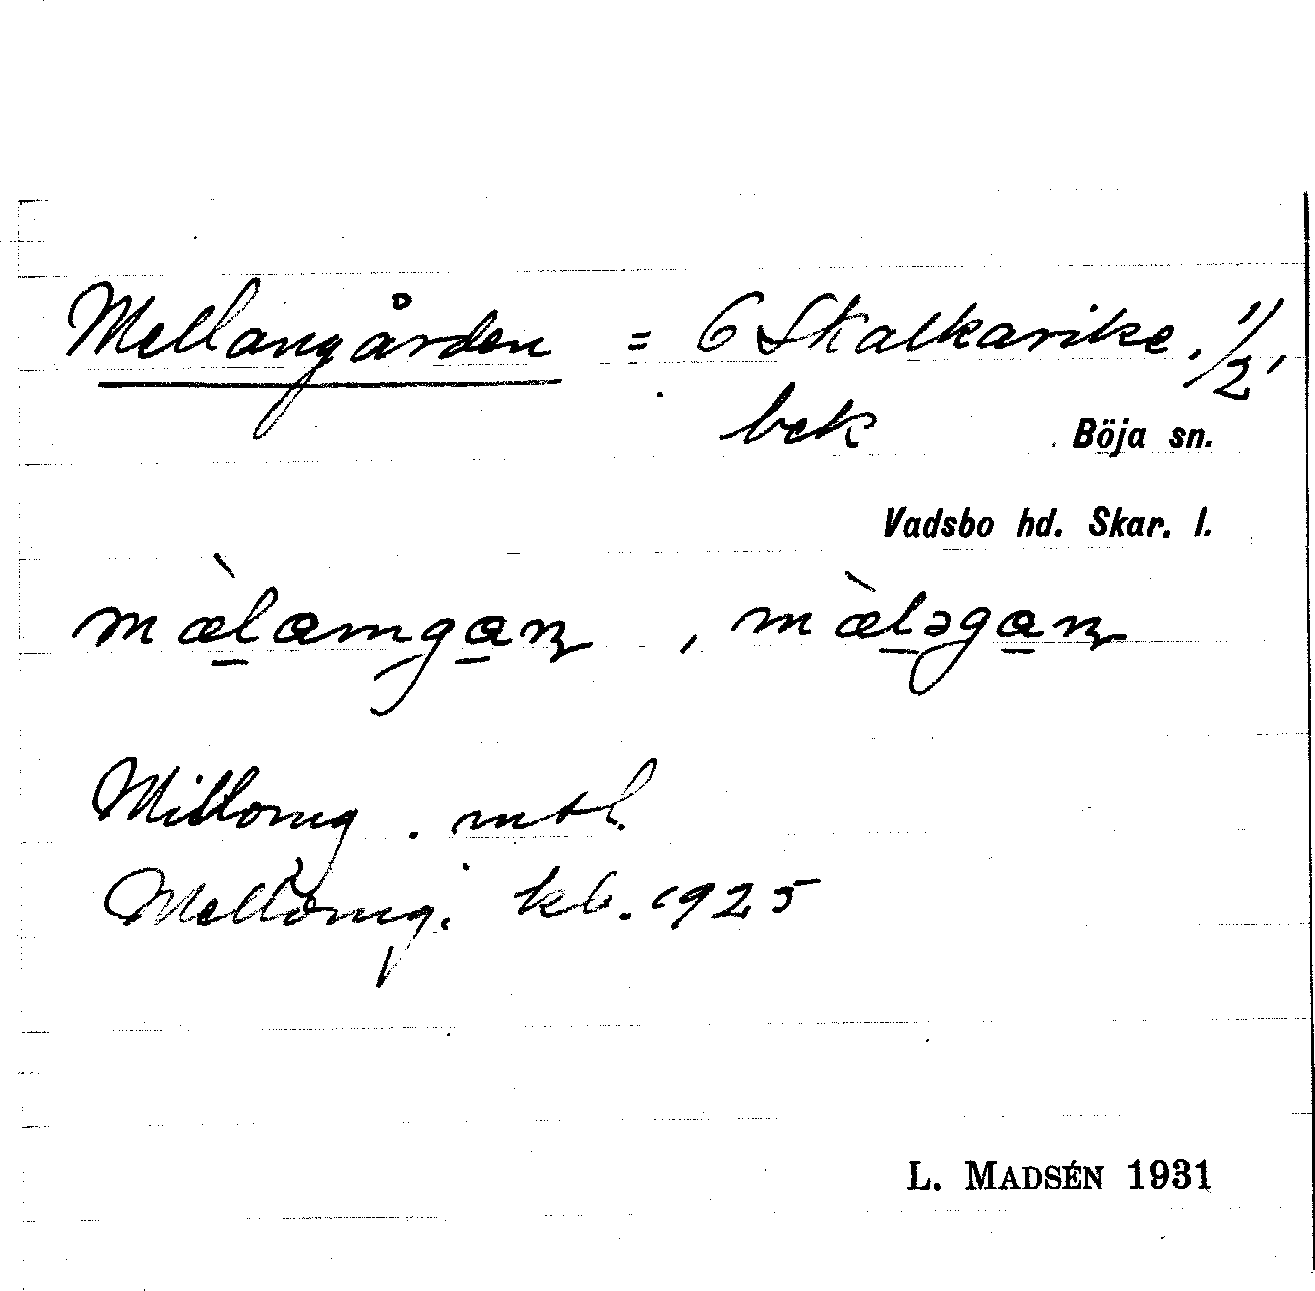 Mellangården = 6 Skalkarike. 1/2,
bek Böja sn.
Vadsbo hd. Skar. l.
mæ̀lamgan, mæ̀ləgan
Mellomg. mtl.
Mellomg. kb. 1925
L. MADSÉN 1931